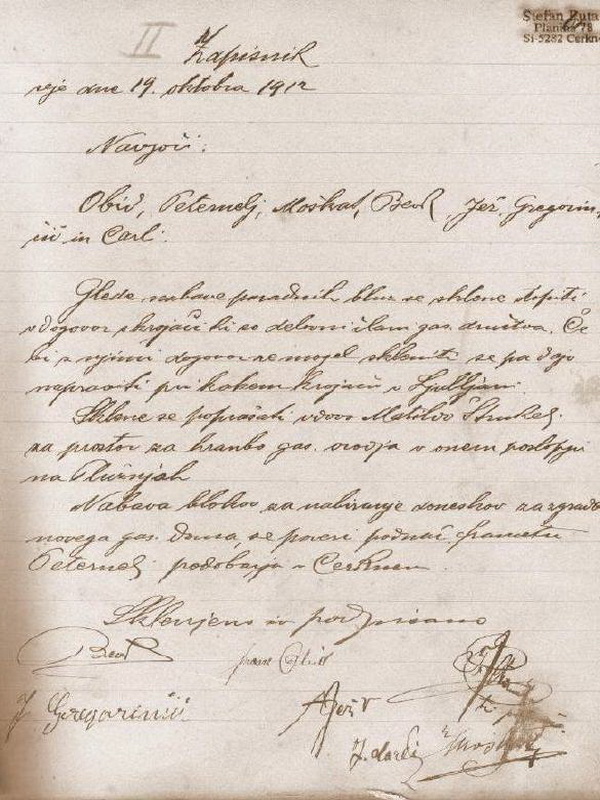 II
Zapisnik
Štefan
Planina 78
SI-5282 Cerkno
seje dne 19. oktobra 1912
Navzoči:
Obid, Peternelj, Močkat, Bevk, Jež, Gregorin,
čič in Carli.
Glede nabave paradnih bluz se sklene stopiti
v dogovor s krojači ki so delovni člani gas. društva. Če
bi z njimi dogovor ne mogel skleniti se pa dajo
napraviti pri kakem krojaču v Ljubljani.
Sklene se poprašati vdovo Matildo Štrukelj
za prostor za hrambo gas. orodja v onem poslopju
na Plužnjah
Nabava blokov za nabiranje doneskov za zgradbo
novega gas. doma, se poveri podnač. Francetu
Peternelj podobarja v Cerknem.
Sklenjeno in podpisano
Bevk
J. Gregorinčič
A Jež
J. Carli